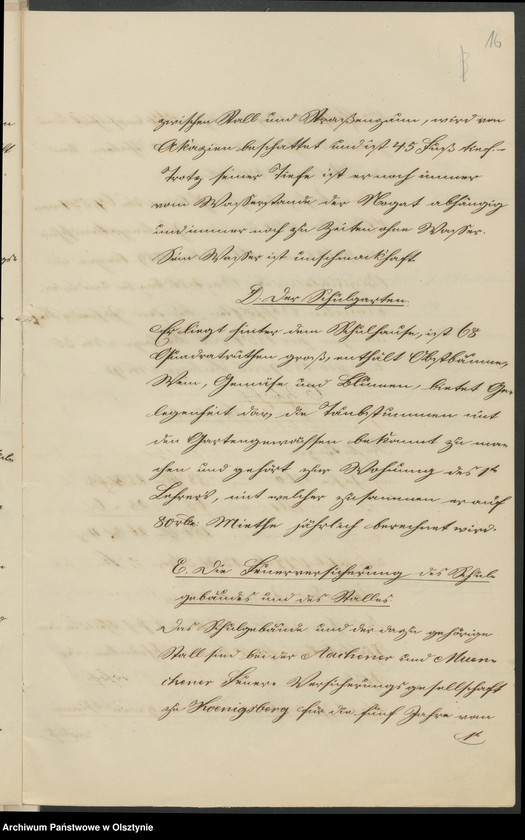 16
zwischen Stall und Straßenzaun, wird von
Akazien beschattet und ist 45 Fuß tief.–
Trotz seiner Tiefe ist er noch immer
vom Wasserstande der Nogat abhängig
und immer noch zu Zeiten ohne Wasser.
Sein Wasser ist unschmackhaft.
D. Der Schulgarten.
Er liegt hinter dem Schulhause, ist 68
Quadratruthen groß, enthält Obstbäume,
Wein, Gemüse und Blumen, bietet Ge-
legenheit dar, die Taubstummen mit
den Gartengewächsen bekannt zu ma-
chen und gehört zur Wohnung des 1t
Lehrers, mit welcher zusammen er auf
80 rtlr. Miethe jährlich berechnet wird.
E. Die Feuerversicherung des Schul-
gebäudes und des Stalles
Das Schulgebäude und der dazu gehörige
Stall sind bei der Aachener und Muen-
chener Feuer-Versicherungsgesellschaft
zu Koenigsberg für die fünf Jahre vom
1t
Archiwum Państwowe w Olsztynie